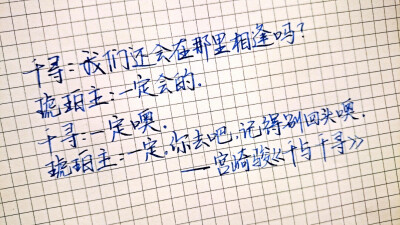 千寻:我们还会在那里相逢吗?
琥珀主:一定会的.
千寻:一定噢.
琥珀主:一定,你去吧,记得别回头噢.
——宫崎骏《千与千寻》